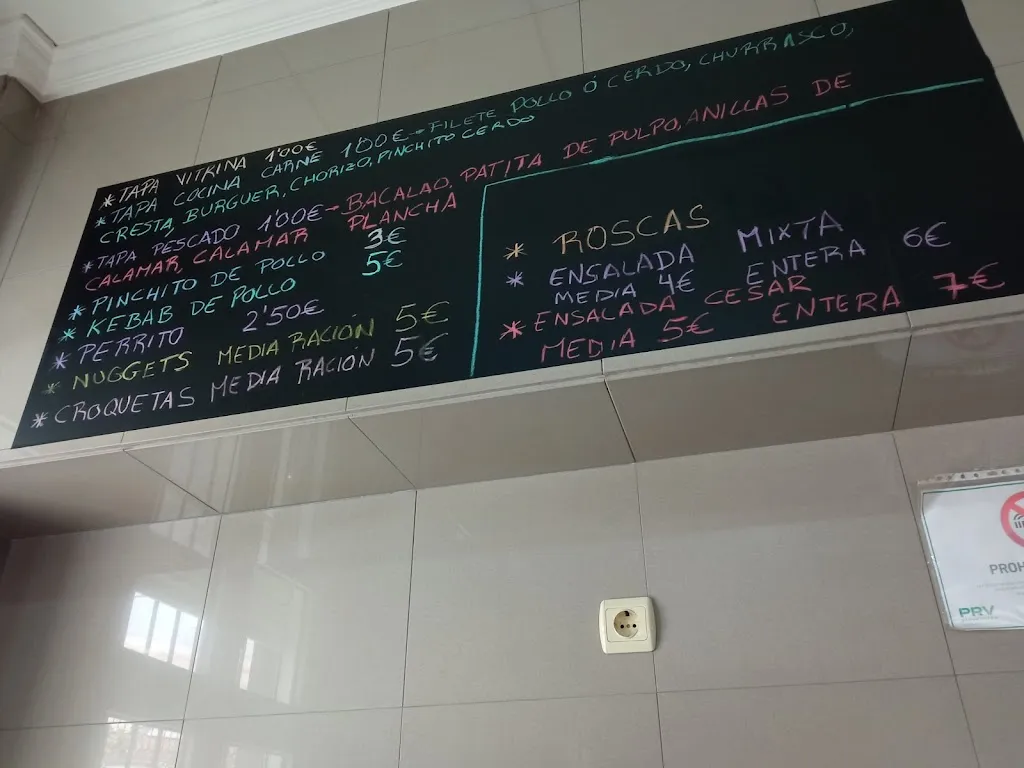 * TAPA VITRINA 1'00€
* TAPA COCINA CARNE 1'00€ → FILETE POLLO Ó CERDO, CHURRASCO,
CRESTA, BURGUER, CHORIZO, PINCHITO CERDO
* TAPA PESCADO 1'00€ - BACALAO, PATITA DE PULPO, ANILLAS DE
CALAMAR, CALAMAR PLANCHA
* PINCHITO DE POLLO 3€
* KEBAB DE POLLO 5€
* PERRITO 2'50€
* NUGGETS MEDIA RACIÓN 5€
* CROQUETAS MEDIA RACION 5€
* ROSCAS
* ENSALADA MIXTA
MEDIA 4€ ENTERA 6€
* ENSALADA CESAR
MEDIA 5€ ENTERA 7€
PROH
PRV